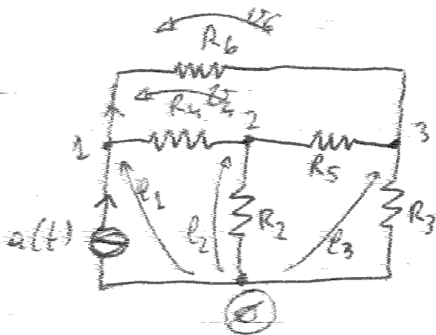 v6
R6
v4
R4
1
2
3
R5
e1
e2
R2
e3
R3
a(t)
0